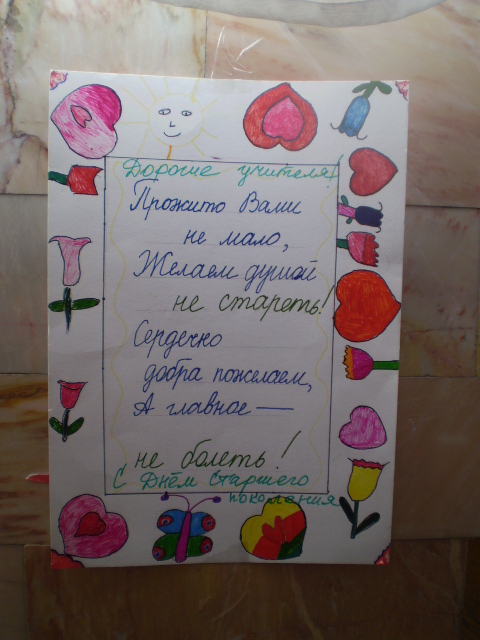 Дорогие учителя!
Прожито Вами
не мало,
Желаем душой
не стареть!
Сердечно
добра пожелаем,
А главное —
не болеть!
С Днём Старшего
поколения